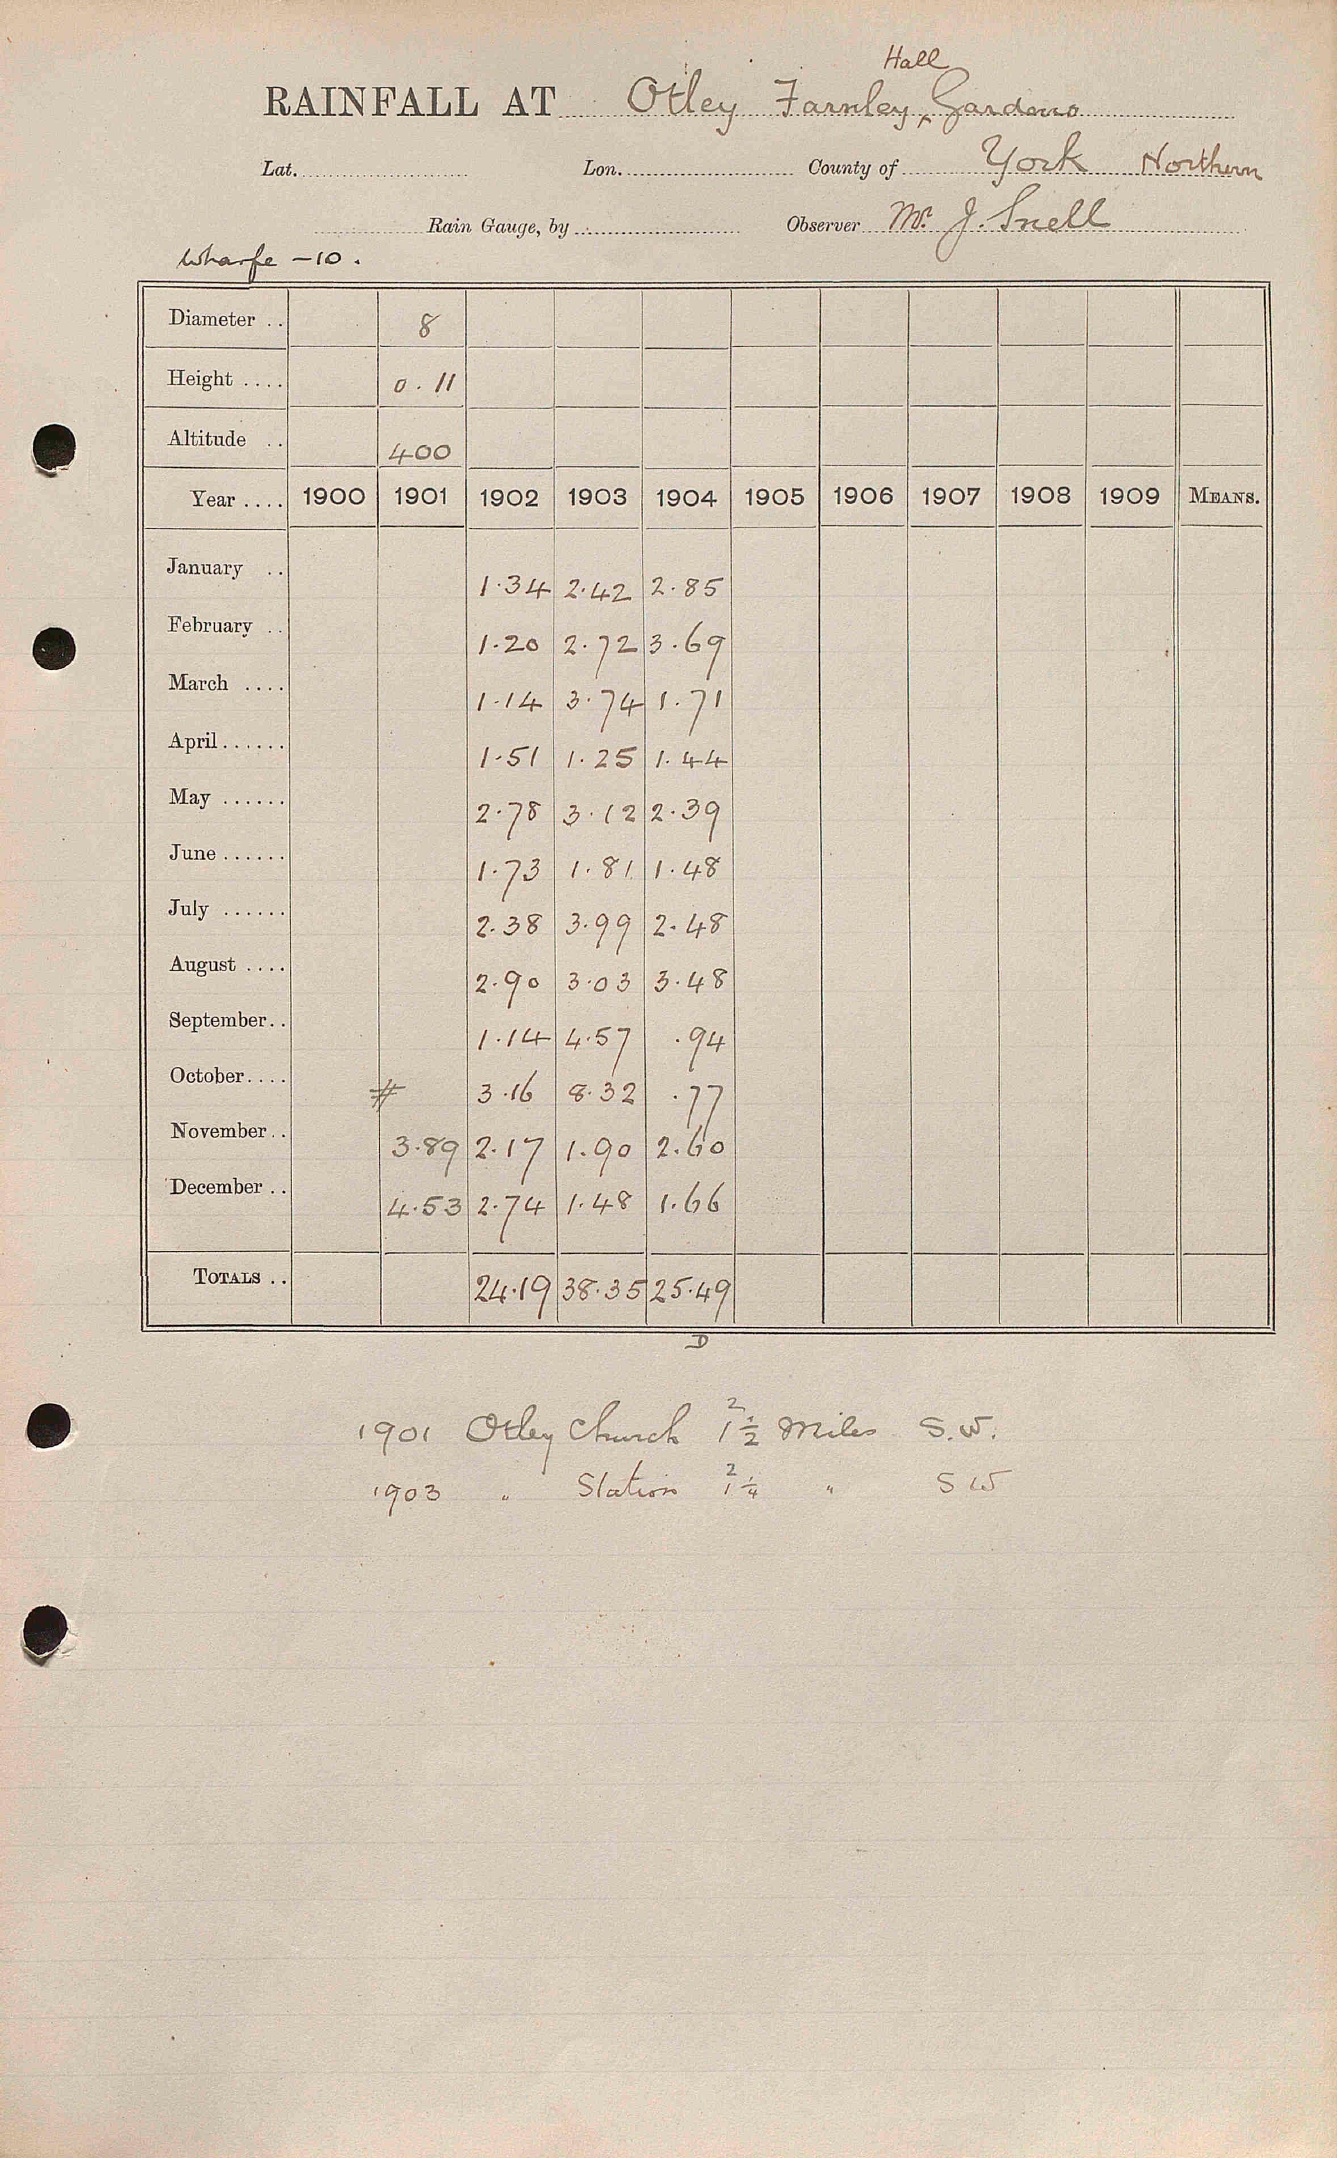 Hall
RAINFALL AT Otley Farnley Gardens
Lat. Lon. County of York Northern
Rain Gauge, by Observer Mr. J. Snell
Wharfe - 10.
Diameter .. 8
Height .... 0.11
Altitude .. 400
Year .... 1900 1901 1902 1903 1904 1905 1906 1907 1908 1909 MEANS.
January .. 1.34 2.42 2.85
February .. 1.20 2.72 3.69
March .... 1.14 3.74 1.71
April...... 1.51 1.25 1.44
May ...... 2.78 3.12 2.39
June...... 1.73 1.81 1.48
July ...... 2.38 3.99 2.48
August .... 2.90 3.03 3.48
September.. 1.14 4.57 .94
October.... # 3.16 8.32 .77
November.. 3.89 2.17 1.90 2.60
December .. 4.53 2.74 1.48 1.66
TOTALS .. 24.19 38.35 25.49
D
2
1901 Otley Church 1½ Miles S.W.
2
1903 " Station 1¼ " S W